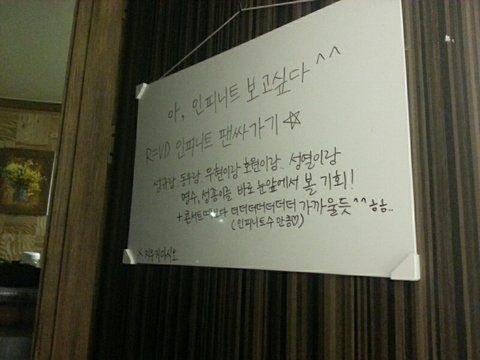 아, 인피니트 보고싶다 ^^
R=VD 인피니트 팬싸가기 ☆
성규랑, 동우랑, 우현이랑 호원이랑, 성열이랑
명수, 성종이를 바로 눈앞에서 볼 기회!
+ 콘서트때보다 더더더더더더더 가까울듯^^ 하하..
(인피니트수 만큼♡)
※지우지마시오